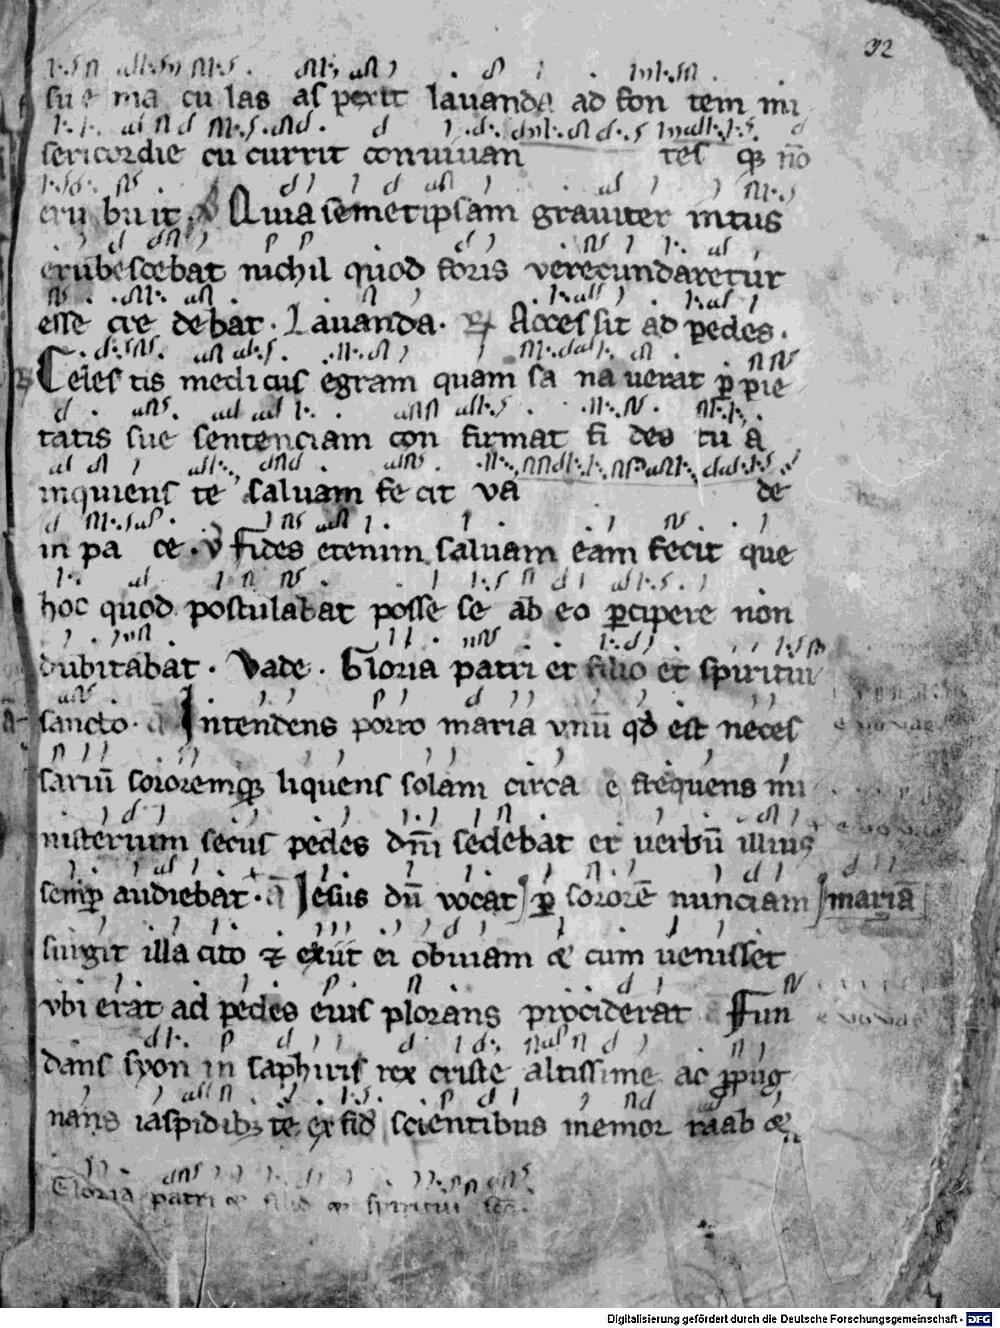 92
sue ma cu las as pexit lavanda ad fon tem mi
sericordie cu currit conuiuan tes q; nō
eru bu it. V Quia semetipsam grauiter intus
erubescebat nichil quod foris verecundaretur
esse cre debat. Lauanda. Accessit ad pedes.
Celes tis medicus egram quam sa na uerat p pie
tatis sue sentenciam con firmat fi des tu a
inquiens te saluam fe cit va de
in pa ce. V fides etenim saluam eam fecit que
hoc quod postulabat posse se ab eo pcipere non
dubitabat. Vade. Gloria patri et filio et spiritui
sancto. Intendens porro maria vnū qd est neces
sariū sororemq; liquens solam circa frequens mi
nisterium secus pedes dnī sedebat et uerbū illius
semp audiebat. ā Jesus dū vocat p sororē nunciam mariā
surgit illa cito & exiit ei obuiam & cum uenisset
vbi erat ad pedes eius plorans prociderat Fun
dans syon in saphiris rex criste altissime ac ppug
nans iaspidib; te ex fid scientibus memor raab &
Gloria patri & filio & spiritui scō.
Digitalisierung gefördert durch die Deutsche Forschungsgemeinschaft - DFG